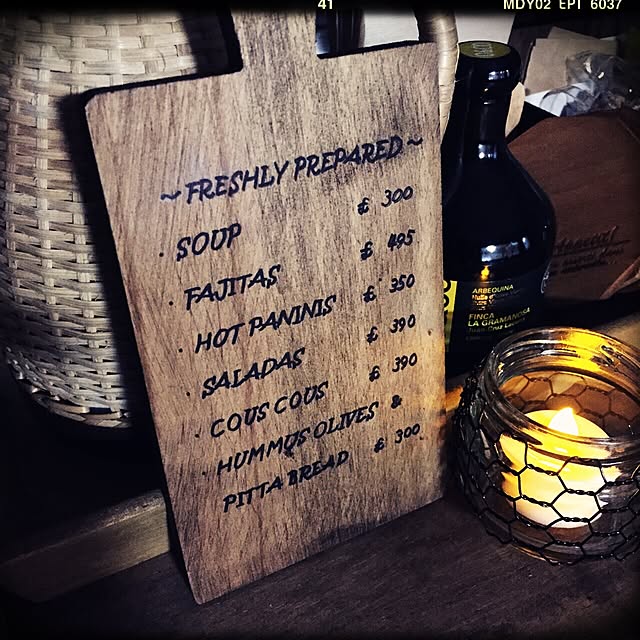 41 MDY02 EPT 6037
~ FRESHLY PREPARED ~
· SOUP £ 300
· FAJITAS £ 495
· HOT PANINIS £ 350
· SALADAS £ 390
· COUS COUS £ 390
· HUMMUS OLIVES &
PITTA BREAD £ 300
ARBEQUINA
FINCA
LA GRAMANOSA